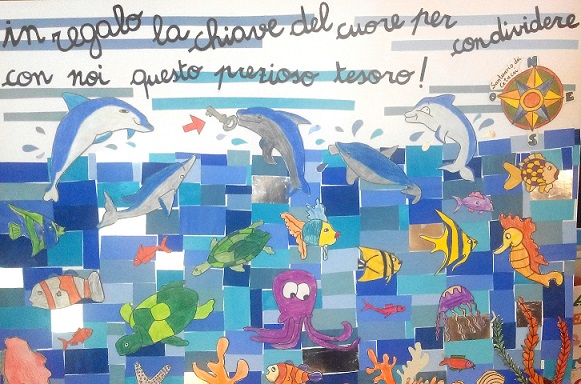 in regalo la chiave del cuore per condividere
con noi questo prezioso tesoro!
Santuario dei Cetacei
N
O
E
S